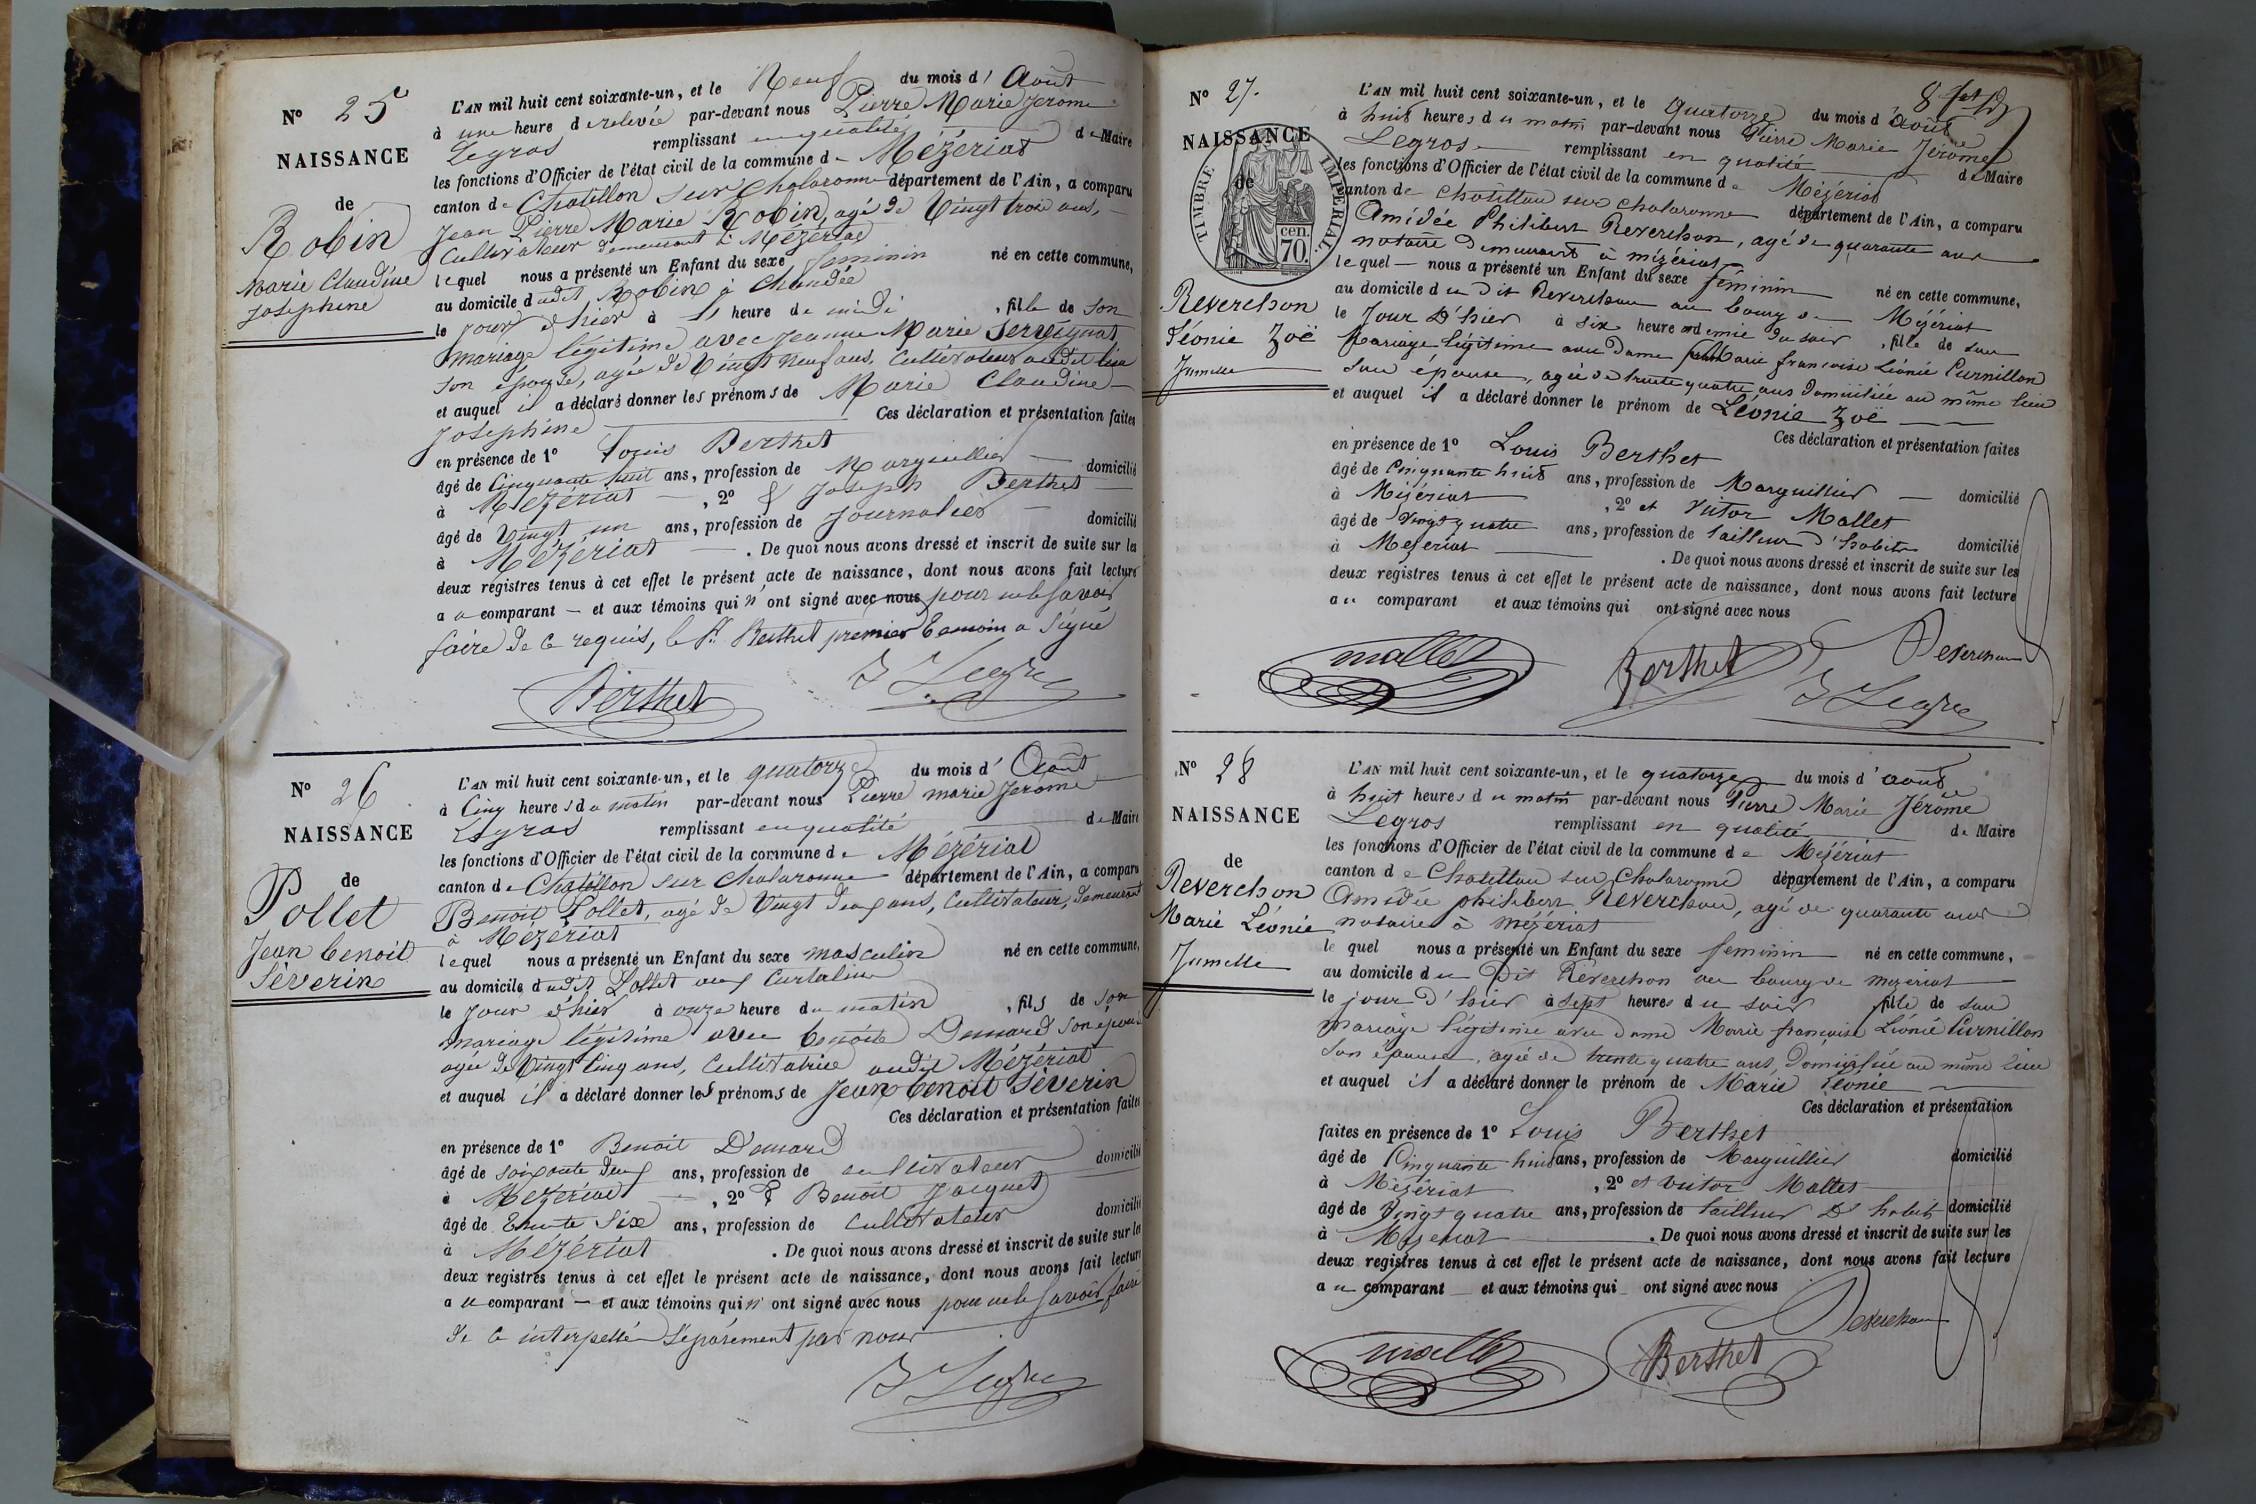 N° 25
NAISSANCE
de
Robin
Marie Claudine
Josephine
L'AN mil huit cent soixante-un, et le Neuf du mois d' Août
à une heure de relevée par-devant nous Pierre Marie Jerome
Legros remplissant en qualité de Maire
les fonctions d'Officier de l'état civil de la commune de Mézériat
canton de Chatillon sur Chalaronne département de l'Ain, a comparu
Jean Pierre Marie Robin, agé de Vingt trois ans,
Cultivateur demeurant à Mézériat
lequel nous a présenté un Enfant du sexe feminin né en cette commune,
au domicile dudit Robin à
le jour d'hier à heure de midi , fille de son
mariage légitime avec Jeanne Marie Servignat
son épouse, agée de Vingt neuf ans, Cultivateur audit lieu
et auquel il a déclaré donner les prénoms de Marie Claudine
Josephine Ces déclaration et présentation faites
en présence de 1° Louis Berthet
âgé de Cinquante huit ans, profession de Marguillier domicilié
à Mézériat , 2° & Joseph Berthet
âgé de Vingt un ans, profession de Journalier domicilié
à Mézériat . De quoi nous avons dressé et inscrit de suite sur les
deux registres tenus à cet effet le présent acte de naissance, dont nous avons fait lecture
au comparant et aux témoins qui n'ont signé avec nous pour ne le savoir
faire de ce requis, le Sr. Berthet premier temoin a signé
Berthet
Legros
N° 26
NAISSANCE
de
Pollet
Jean Benoit
Séverin
L'AN mil huit cent soixante-un, et le quatorze du mois d' Août
à Cinq heures du matin par-devant nous Pierre marie Jerome
Legros remplissant en qualité de Maire
les fonctions d'Officier de l'état civil de la commune de Mézériat
canton de Chatillon sur Chalaronne département de l'Ain, a comparu
Benoit Pollet, agé de Vingt deux ans, Cultivateur, demeurant
à Mézériat
lequel nous a présenté un Enfant du sexe masculin né en cette commune,
au domicile dudit Pollet aux Curtelin
le jour d'hier à onze heure du matin , fils de son
mariage légitime avec Benoite Demard son épouse
agée de Vingt Cinq ans, Cultivatrice audit Mézériat
et auquel il a déclaré donner les prénoms de Jean Benoit Séverin
Ces déclaration et présentation faites
en présence de 1° Benoit Demard
âgé de soixante deux ans, profession de cultivateur domicilié
à Mézériat , 2° & Benoit Jacquet
âgé de Trente Six ans, profession de Cultivateur domicilié
à Mézériat . De quoi nous avons dressé et inscrit de suite sur les
deux registres tenus à cet effet le présent acte de naissance, dont nous avons fait lecture
au comparant et aux témoins qui n'ont signé avec nous pour ne le savoir faire
de ce interpellé Séparément par nous
Legros
8
N° 27.
NAISSANCE
de
TIMBRE IMPERIAL.
70. cen.
Reverchon
Léonie Zoë
Jumelle
L'AN mil huit cent soixante-un, et le quatorze du mois d'Août
à huit heures du matin par-devant nous Pierre Marie Jérôme
Legros remplissant en qualité de Maire
les fonctions d'Officier de l'état civil de la commune de Mézériat
canton de Châtillon sur Chalaronne département de l'Ain, a comparu
Amédée Philibert Reverchon, agé de quarante ans
notaire demeurant à mézériat
lequel nous a présenté un Enfant du sexe féminin né en cette commune,
au domicile du dit Reverchon au bourg de Mézériat
le Jour d'hier à six heure et demie du soir , fille de son
mariage légitime avec Dame Marie francoise Léonie Curnillon
son épouse, agée de trente quatre ans domiciliée au même lieu
et auquel il a déclaré donner le prénom de Léonie Zoë
Ces déclaration et présentation faites
en présence de 1° Louis Berthet
âgé de Cinquante huit ans, profession de Marguillier domicilié
à Mézériat , 2° et Victor Mallet
âgé de Vingt quatre ans, profession de tailleur d'habits domicilié
à Mézériat . De quoi nous avons dressé et inscrit de suite sur les
deux registres tenus à cet effet le présent acte de naissance, dont nous avons fait lecture
au comparant et aux témoins qui ont signé avec nous
mallet
Berthet
Reverchon
Legros
N° 28
NAISSANCE
de
Reverchon
Marie Léonie
Jumelle
L'AN mil huit cent soixante-un, et le quatorze du mois d'août
à huit heures du matin par-devant nous Pierre Marie Jérôme
Legros remplissant en qualité de Maire
les fonctions d'Officier de l'état civil de la commune de Mézériat
canton de Chatillon sur Chalaronne département de l'Ain, a comparu
Amédée philibert Reverchon, agé de quarante ans
notaire à mézériat
lequel nous a présenté un Enfant du sexe feminin né en cette commune,
au domicile du Dit Reverchon au bourg de mézériat
le jour d'hier à sept heures du soir , fille de son
mariage légitime avec dame Marie françoise Léonie Curnillon
son épouse, agée de trente quatre ans, Domiciliée au même lieu
et auquel il a déclaré donner le prénom de Marie Léonie
Ces déclaration et présentation
faites en présence de 1° Louis Berthet
âgé de Cinquante huit ans, profession de Marguillier domicilié
à Mézériat , 2° et Victor Mallet
âgé de Vingt quatre ans, profession de tailleur D'habits domicilié
à Mézériat . De quoi nous avons dressé et inscrit de suite sur les
deux registres tenus à cet effet le présent acte de naissance, dont nous avons fait lecture
au comparant et aux témoins qui ont signé avec nous
mallet
Berthet
Reverchon